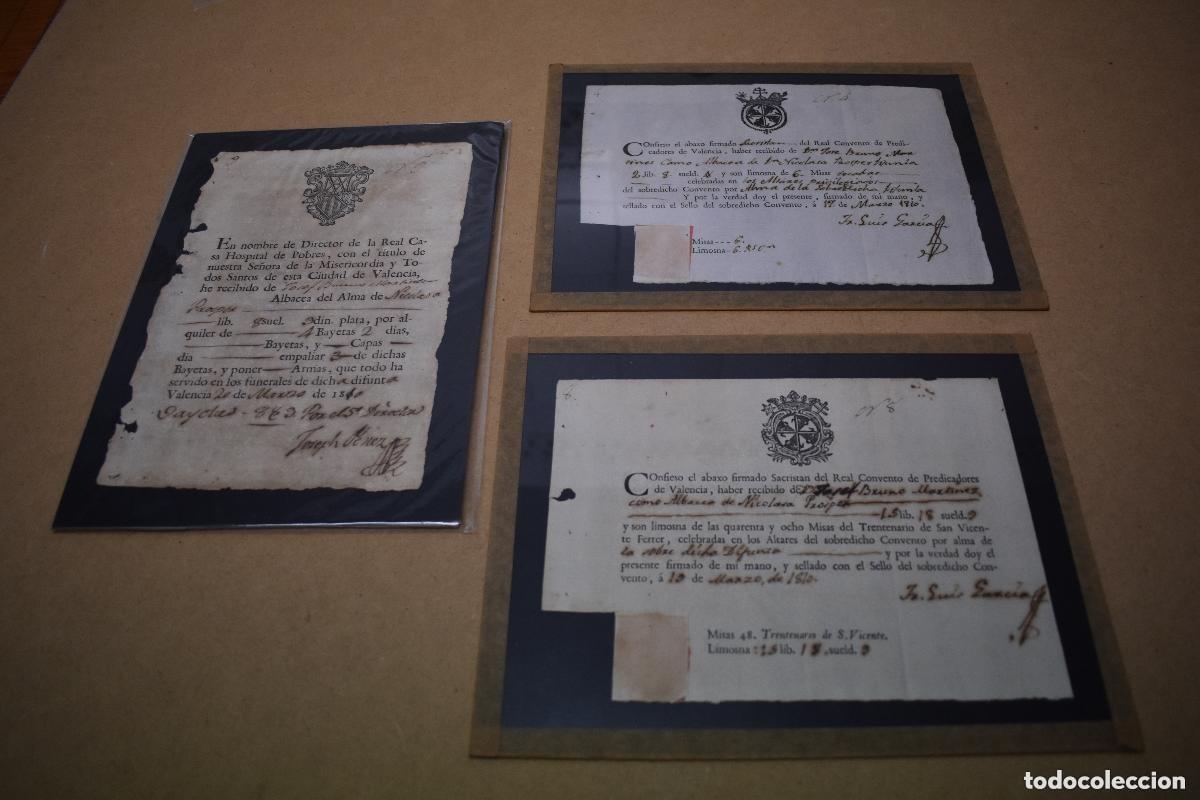 En nombre de Director de la Real Ca-
sa Hospital de Pobres, con el título de
nuestra Señora de la Misericordia y To-
dos Santos de esta Ciudad de Valencia,
he recibido de Josef Bruno Martinez
Albacea del Alma de Nicolasa
Prosper
lib. 8 suel. 9 din. plata, por al-
quiler de 4 Bayetas 2 dias,
Bayetas, y Capas
dia empaliar 3 de dichas
Bayetas, y poner Armas, que todo ha
servido en los funerales de dicha difunta
Valencia 20 de Marzo de 1810
Joseph
Nº
COnfieso el abaxo firmado Sacristan del Real Convento de Predi-
cadores de Valencia, haber recibido de Dn. Jose Bruno Mar
tines como Albacea de Da. Nicolasa Prosper
2 lib. 8 sueld. 4 y son limosna de 6 Misas
celebradas en los Altares
del sobredicho Convento por Alma de la Sobredicha
Y por la verdad doy el presente, firmado de mi mano, y
sellado con el Sello del sobredicho Convento, á 17 de Marzo 1810.
Fr. Luis Garcia
Misas --- 6
Limosna - 6
Nº 8
COnfieso el abaxo firmado Sacristan del Real Convento de Predicadores
de Valencia, haber recibido de Dn. Josef Bruno Martinez
como Albacea de Nicolasa Prosper
15 lib. 18 sueld. 9
y son limosna de las quarenta y ocho Misas del Trentenario de San Vicen-
te Ferrer, celebradas en los Altares del sobredicho Convento por alma de
la sobre dicha Difunta y por la verdad doy el
presente firmado de mi mano, y sellado con el Sello del sobredicho Con-
vento, á 19 de Marzo, de 1810.
Fr. Luis Garcia
Misas 48. Trentenario de S. Vicente.
Limosna: 15 lib. 18 sueld. 9
todocoleccion